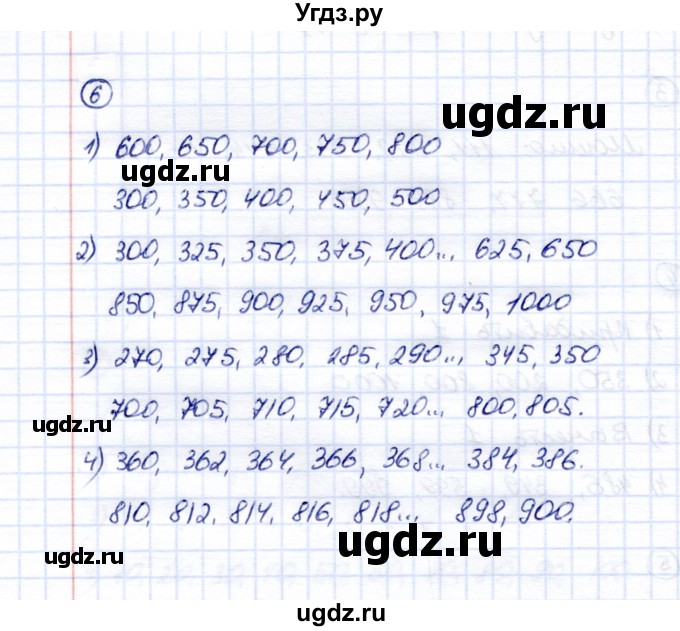 Угдз.ру
6
ugdz.ru
1) 600, 650, 700, 750, 800
ugdz.ru
300, 350, 400, 450, 500
2) 300, 325, 350, 375, 400... 625, 650
850, 875, 900, 925, 950, 975, 1000
3) 270, 275, 280, 285, 290... 345, 350
700, 705, 710, 715, 720... 800, 805.
ugdz.ru
4) 360, 362, 364, 366, 368... 384, 386.
810, 812, 814, 816, 818... 898, 900.
ugdz.ru
ugdz.ru
ugdz.ru